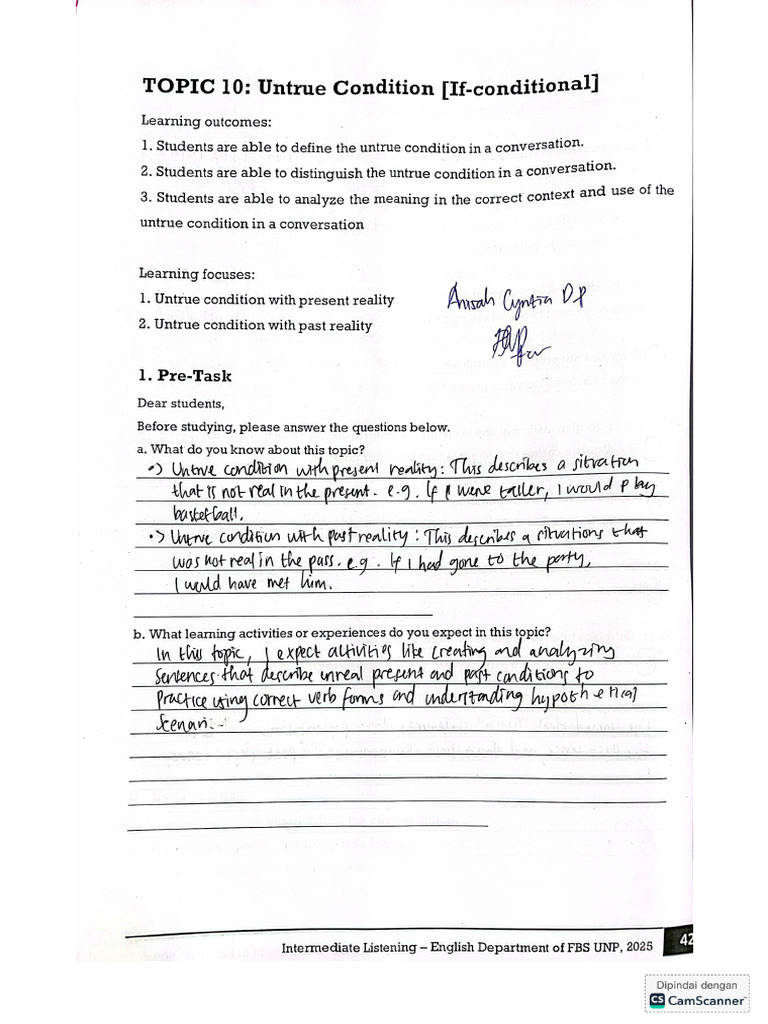 TOPIC 10: Untrue Condition [If-conditional]
Learning outcomes:
1. Students are able to define the untrue condition in a conversation.
2. Students are able to distinguish the untrue condition in a conversation.
3. Students are able to analyze the meaning in the correct context and use of the
untrue condition in a conversation
Learning focuses:
1. Untrue condition with present reality
2. Untrue condition with past reality
Cyntia DP
1. Pre-Task
Dear students,
Before studying, please answer the questions below.
a. What do you know about this topic?
•) Untrue condition with present reality: This describes a situation
that is not real in the present. e.g. If I were taller, I would play
basketball.
•) Untrue condition with past reality: This describes a situations that
was not real in the pass. e.g. If I had gone to the party,
I would have met him.
b. What learning activities or experiences do you expect in this topic?
In this topic, I expect activities like creating and analyzing
sentences that describe unreal present and past conditions to
practice using correct verb forms and understanding hypothetical
scenari.
Intermediate Listening – English Department of FBS UNP, 2025
42
Dipindai dengan
CS CamScanner